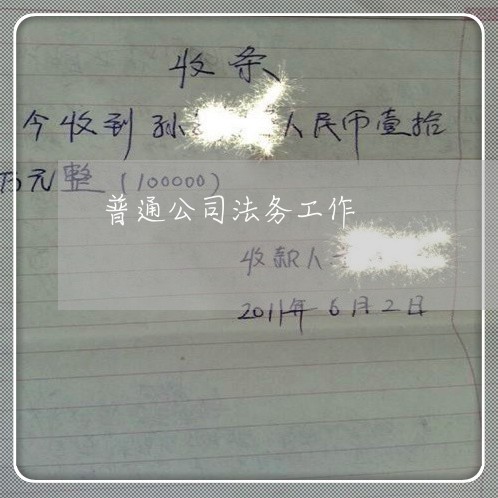 收条
今收到孙 人民币壹拾
万元整(100000)
普通公司法务工作
收款人
2011年6月2日